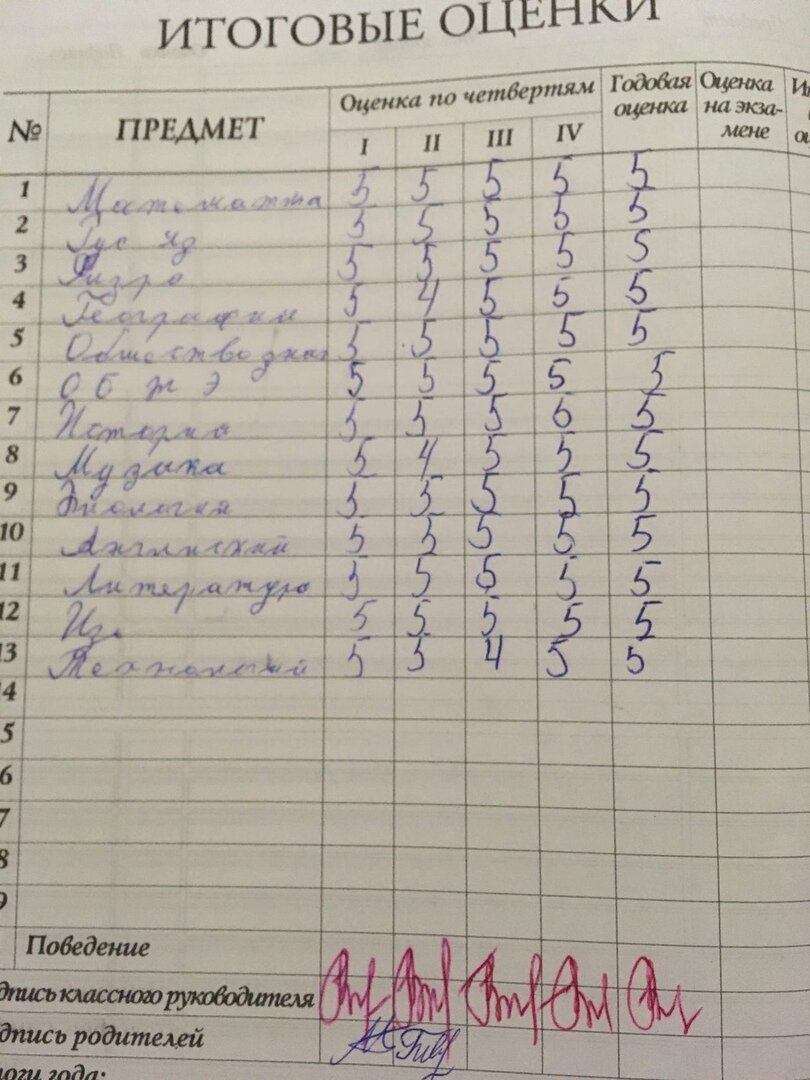 ИТОГОВЫЕ ОЦЕНКИ
№ ПРЕДМЕТ Оценка по четвертям Годовая оценка Оценка на экза-мене
I II III IV
1 Математика 5 5 5 5 5
2 Рус яз 5 5 5 5 5
3 Физро 5 5 5 5 5
4 География 5 4 5 5 5
5 Обществозна 5 5 5 5 5
6 ОБЖЭ 5 5 5 5 5
7 История 5 5 5 5 5
8 Музыка 5 4 5 5 5
9 Биология 5 5 5 5 5
10 Английский 5 5 5 5 5
11 Литература 5 5 5 5 5
12 Изо 5 5 5 5 5
13 Технологий 5 5 4 5 5
14
5
6
7
8
9
Поведение
дпись классного руководителя
дпись родителей
логи года: